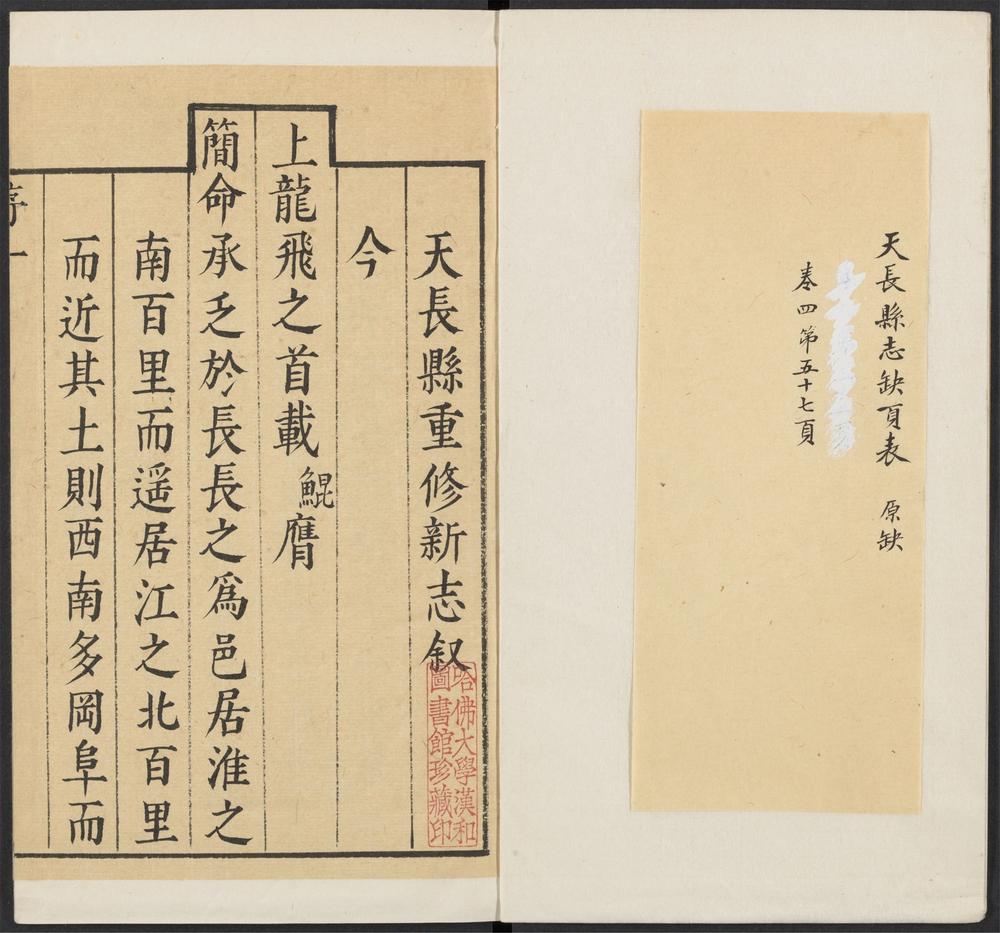 天長縣志缺頁表 原缺
卷四第五十七頁
天長縣重修新志叙
今
上龍飛之首載鯤膺
簡命承乏於長長之爲邑居淮之
南百里而遥居江之北百里
而近其土則西南多岡阜而
序一
哈佛大學漢和
圖書館珍藏印